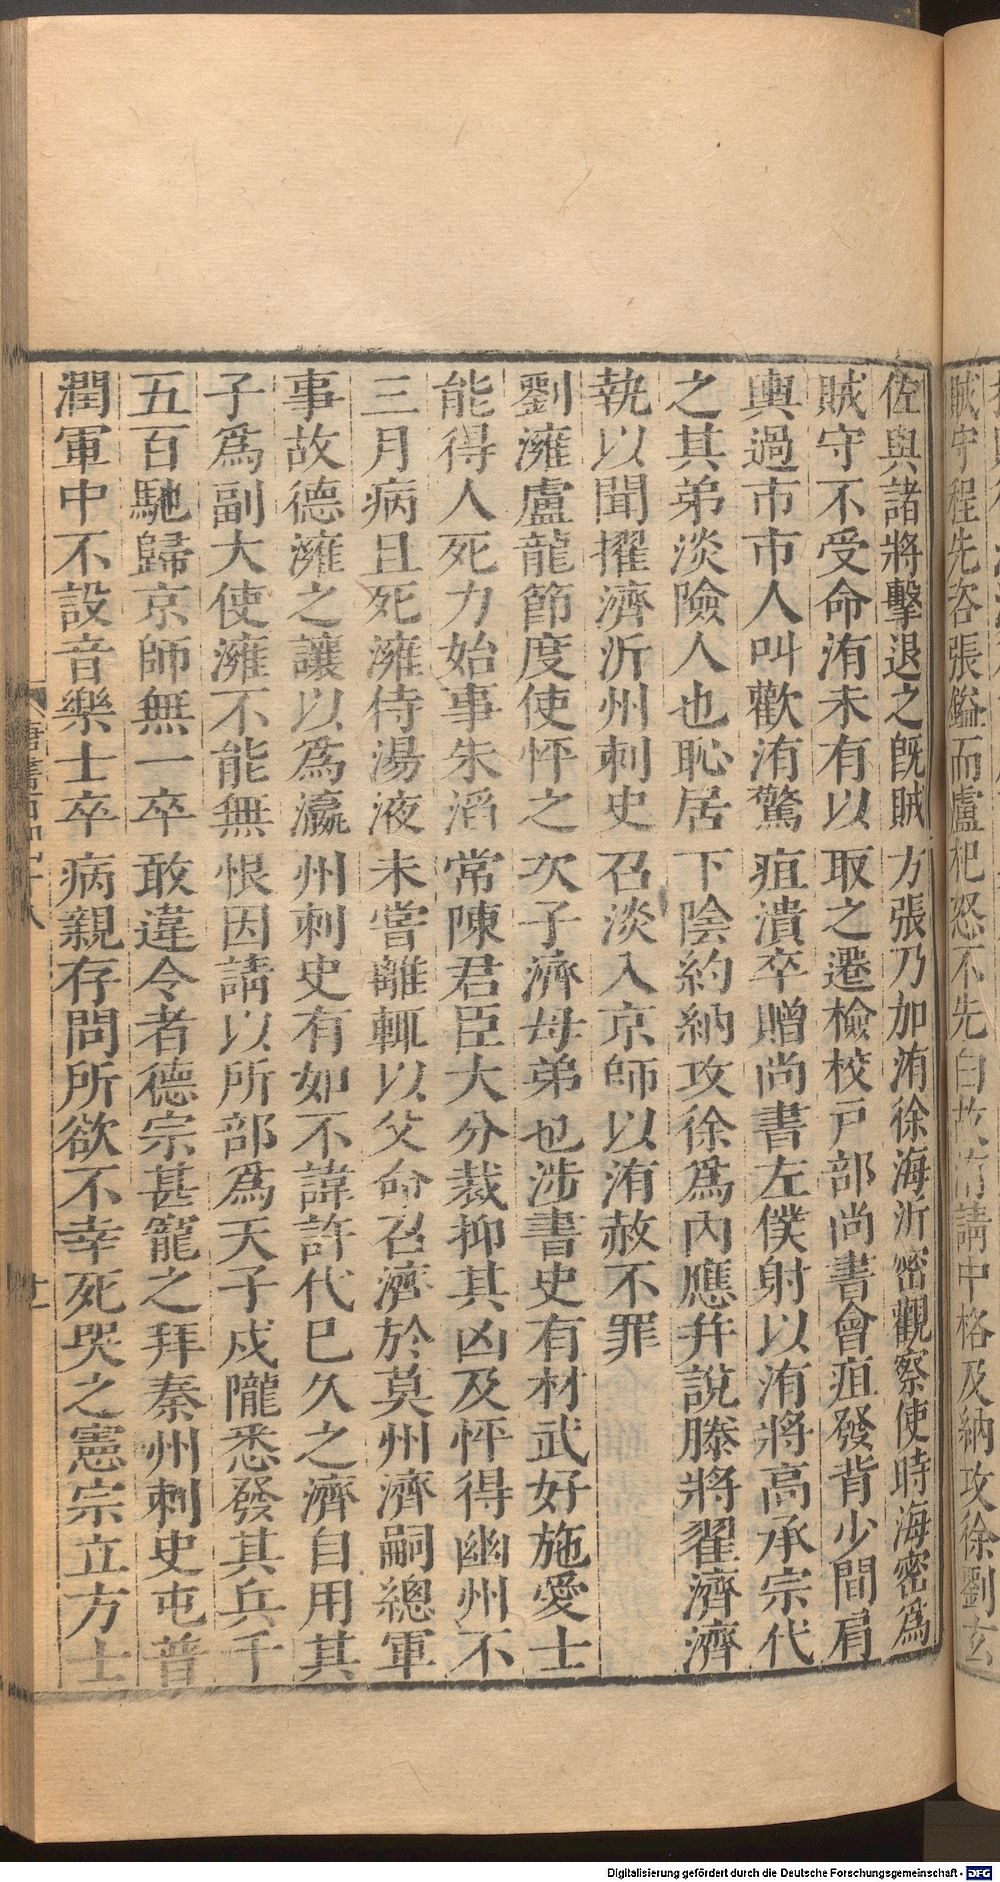 賊守程先咨張鎰而盧杞怒不先白故洧請中格及納攻徐劉玄
佐與諸將擊退之既賊方張乃加洧徐海沂密觀察使時海密爲
賊守不受命洧未有以取之遷檢校戸部尚書會疽發背少間肩
輿過市市人叫歡洧驚疽潰卒贈尚書左僕射以洧將高承宗代
之其弟淡險人也恥居下陰約納攻徐爲內應并說滕將翟濟濟
執以聞擢濟沂州刺史召淡入京師以洧赦不罪
劉澭盧龍節度使怦之次子濟母弟也涉書史有材武好施愛士
能得人死力始事朱滔常陳君臣大分裁抑其凶及怦得幽州不
三月病且死澭侍湯液未嘗離輒以父命召濟於莫州濟嗣總軍
事故德澭之讓以爲瀛州刺史有如不諱許代已久之濟自用其
子爲副大使澭不能無恨因請以所部爲天子戍隴悉發其兵千
五百馳歸京師無一卒敢違令者德宗甚寵之拜秦州刺史屯普
潤軍中不設音樂士卒病親存問所欲不幸死哭之憲宗立方士
唐書百四十八
廿一
Digitalisierung gefördert durch die Deutsche Forschungsgemeinschaft - DFG